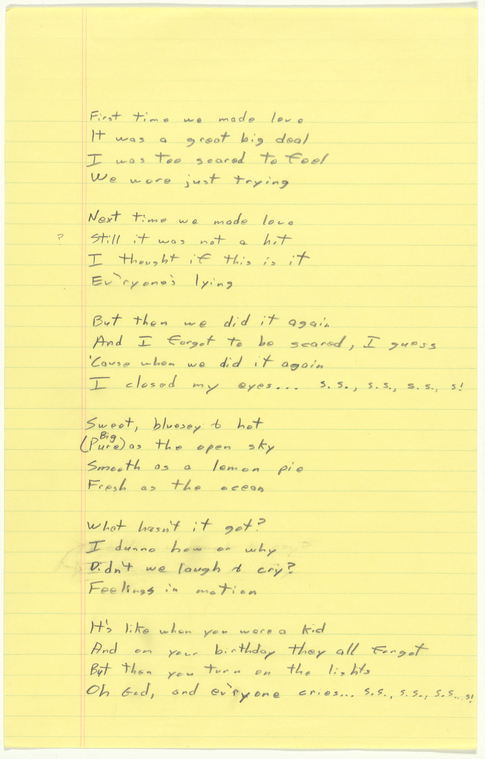 First time we made love
It was a great big deal
I was too scared to feel
We were just trying
Next time we made love
? Still it was not a hit
I thought if this is it
Ev'ryone's lying
But then we did it again
And I forgot to be scared, I guess
'Cause when we did it again
I closed my eyes... s.s., s.s., s.s., s!
Sweet, bluesey & hot
Big
(Pure) as the open sky
Smooth as a lemon pie
Fresh as the ocean
What hasn't it got?
I dunno how or why
Didn't we laugh & cry?
Feelings in motion
It's like when you were a kid
And on your birthday they all forgot
But then you turn on the lights
Oh God, and ev'ryone cries... s.s., s.s., s.s., s!